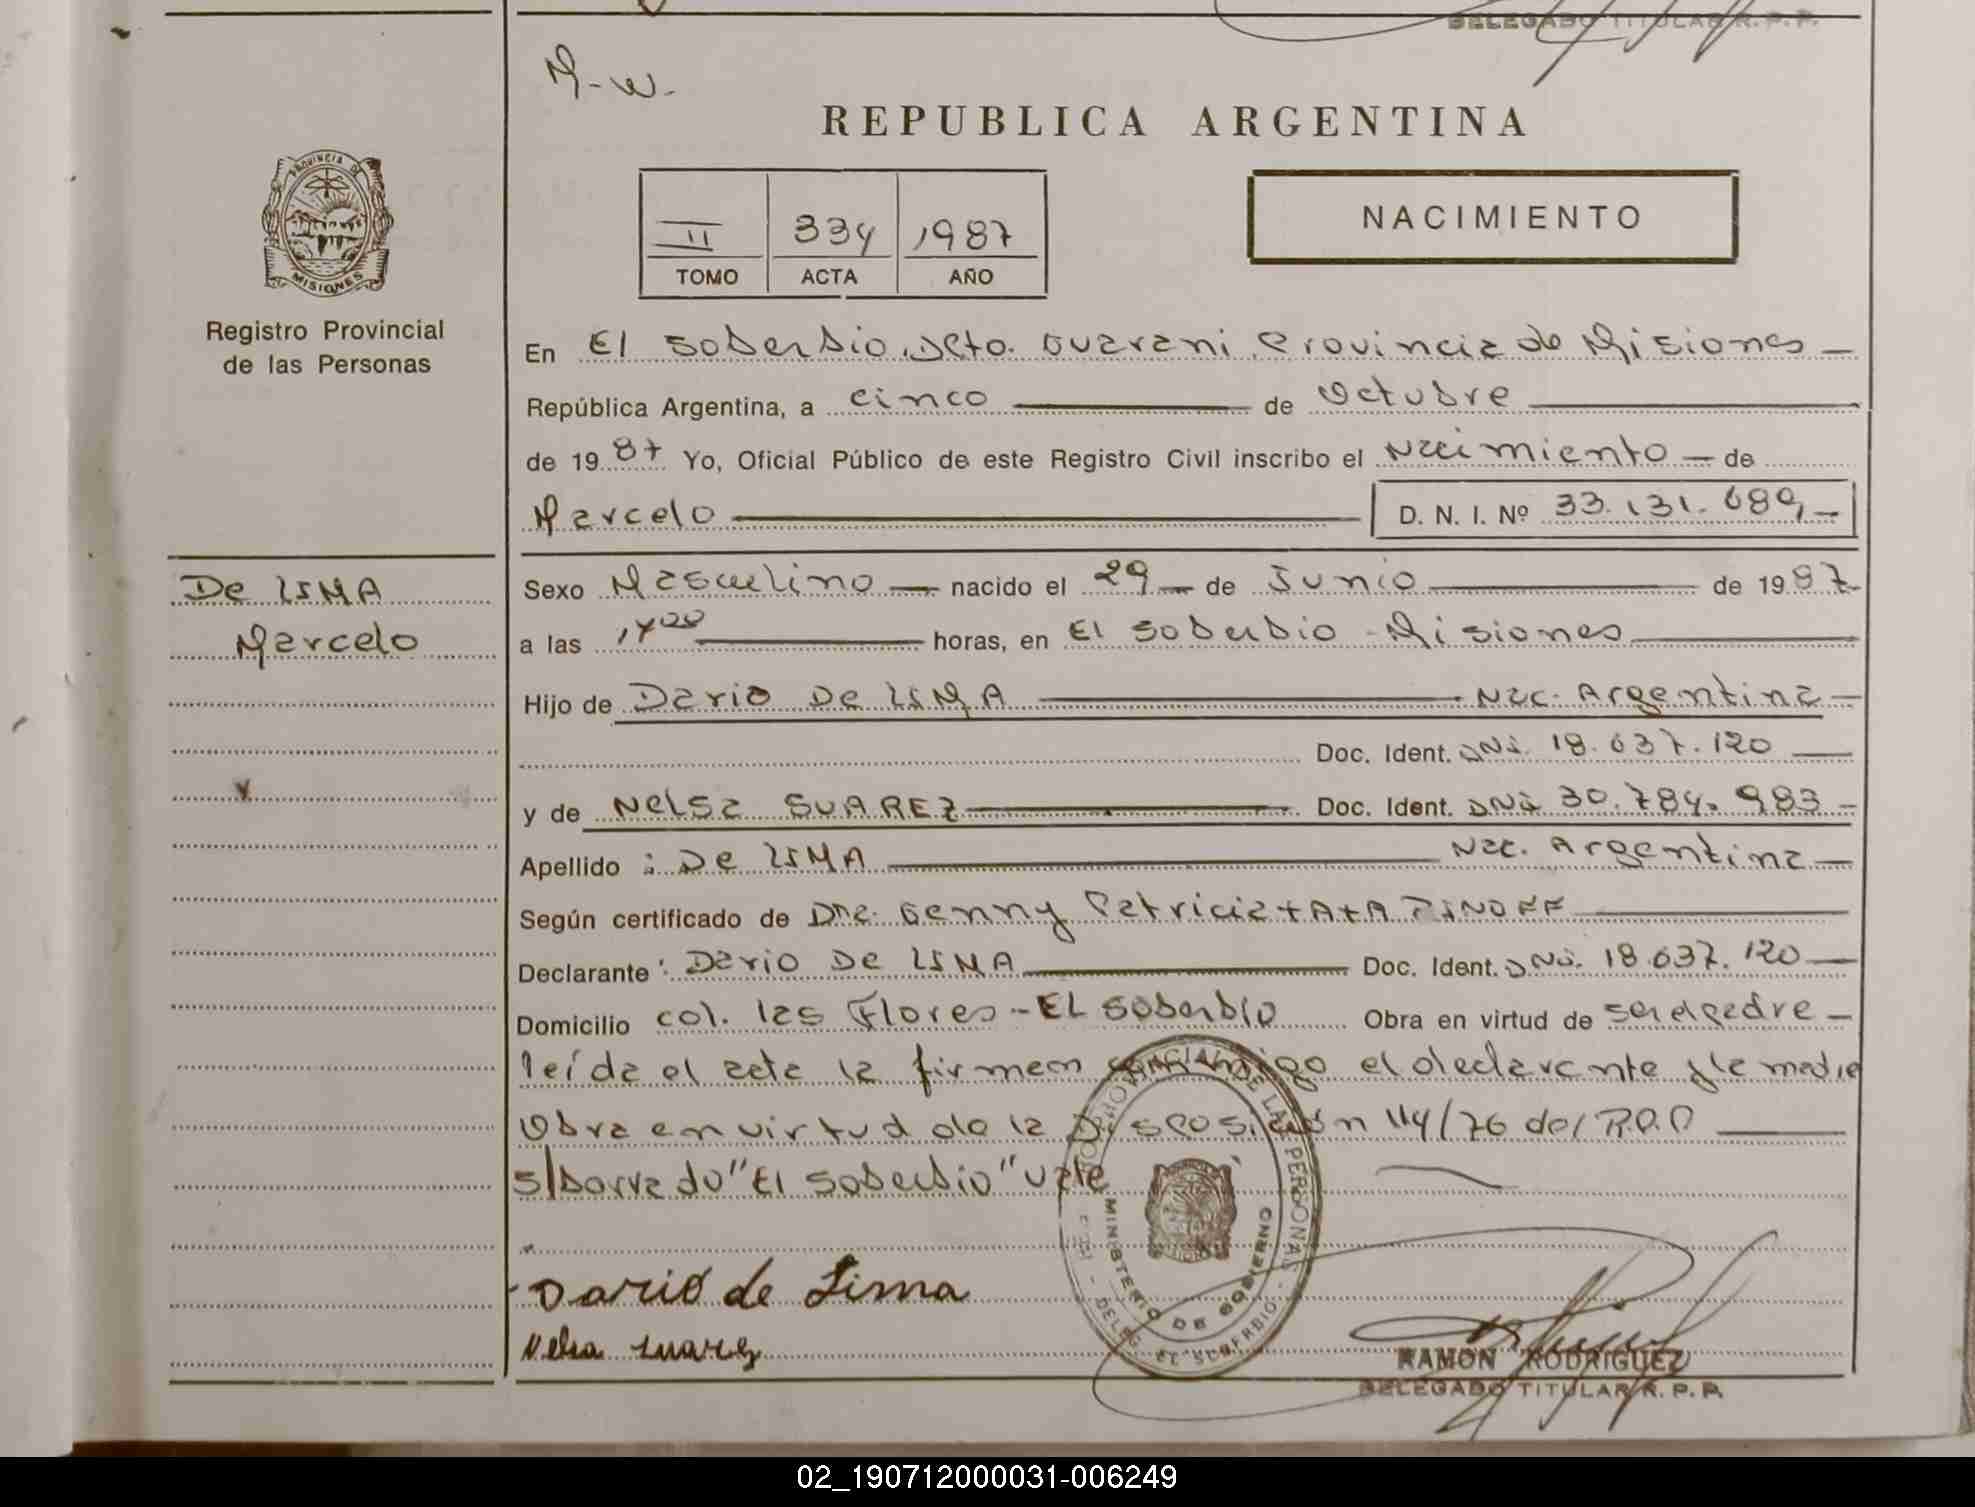 DELEGADO TITULAR R. P. P.
M-W-
REPUBLICA ARGENTINA
PROVINCIA DE
MISIONES
Registro Provincial
de las Personas
II 334 1987
TOMO ACTA AÑO
NACIMIENTO
En El Soberbio, Dcto. Guarani, Provincia de Misiones -
República Argentina, a cinco de Octubre
de 1987 Yo, Oficial Público de este Registro Civil inscribo el Nacimiento - de
Marcelo D. N. I. Nº 33.131.689,-
De LIMA
Marcelo
Sexo Masculino - nacido el 29 - de Junio de 1987-
a las horas, en El Soberbio - Misiones
Hijo de Dario De LIMA Nac. Argentina -
Doc. Ident. DNI. 18.637.120
y de Nelsa SUAREZ Doc. Ident. DNI 30.784.983 -
Apellido : De LIMA Nac. Argentina -
Según certificado de Dra. Genny Patricia
Declarante : Dario De LIMA Doc. Ident. DNI. 18.637.120 -
Domicilio col. las Flores - EL Soberbio Obra en virtud de ser el padre -
leída el acta la firman conmigo el declarante y la madre
Obra en virtud de la Disposición 114/76 del R.P.P
s/borrado "El Soberbio" vale
Dario de Lima
Nelsa Suarez
REGISTRO PROVINCIAL DE LAS PERSONAS - DELEG. EL SOBERBIO
MINISTERIO DE GOBIERNO
RAMON RODRIGUEZ
DELEGADO TITULAR R. P. P.
02_190712000031-006249